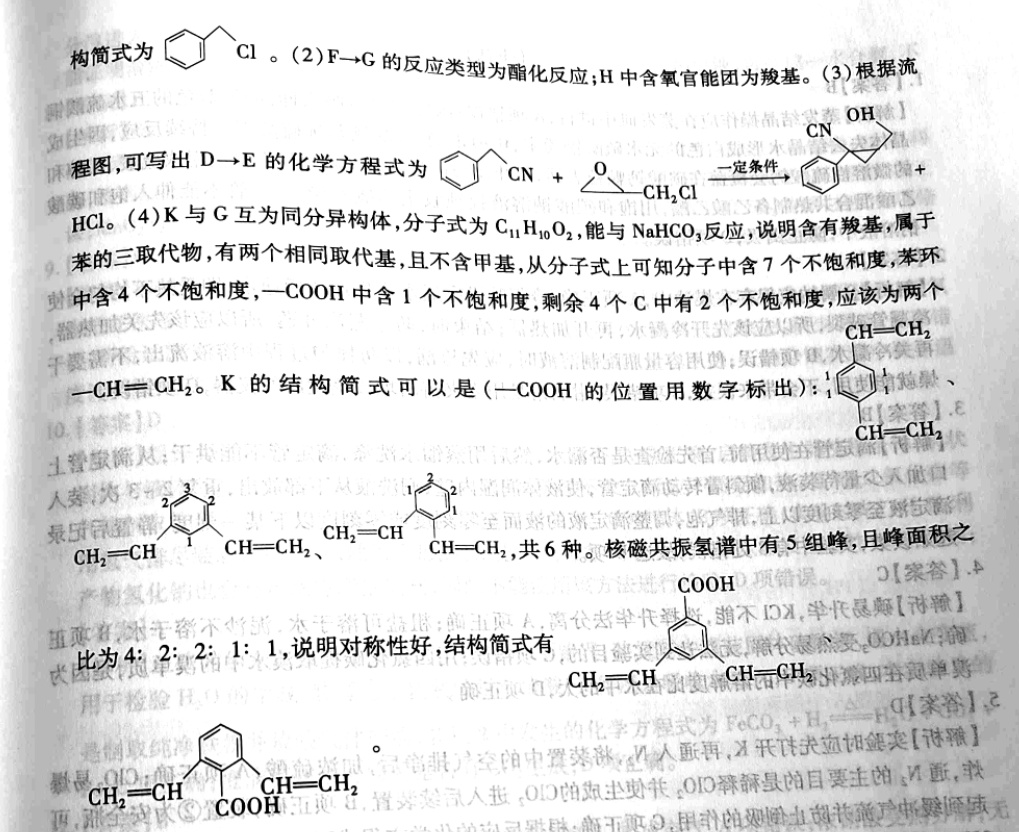 构简式为 Cl 。(2)F→G 的反应类型为酯化反应;H 中含氧官能团为羧基。(3)根据流
程图,可写出 D→E 的化学方程式为 CN + O CH₂Cl 一定条件 CN OH +
HCl。(4)K 与 G 互为同分异构体,分子式为 C₁₁H₁₀O₂,能与 NaHCO₃反应,说明含有羧基,属于
苯的三取代物,有两个相同取代基,且不含甲基,从分子式上可知分子中含 7 个不饱和度,苯环
中含 4 个不饱和度,—COOH 中含 1 个不饱和度,剩余 4 个 C 中有 2 个不饱和度,应该为两个
—CH=CH₂。K 的结构简式可以是(—COOH 的位置用数字标出): CH=CH₂ 1 1 1 1 CH=CH₂ 、
CH₂=CH 2 3 2 1 CH=CH₂、 CH₂=CH 1 2 2 1 CH=CH₂,共 6 种。核磁共振氢谱中有 5 组峰,且峰面积之
比为 4∶2∶2∶1∶1,说明对称性好,结构简式有 COOH CH₂=CH CH=CH₂
CH₂=CH COOH CH=CH₂ 。